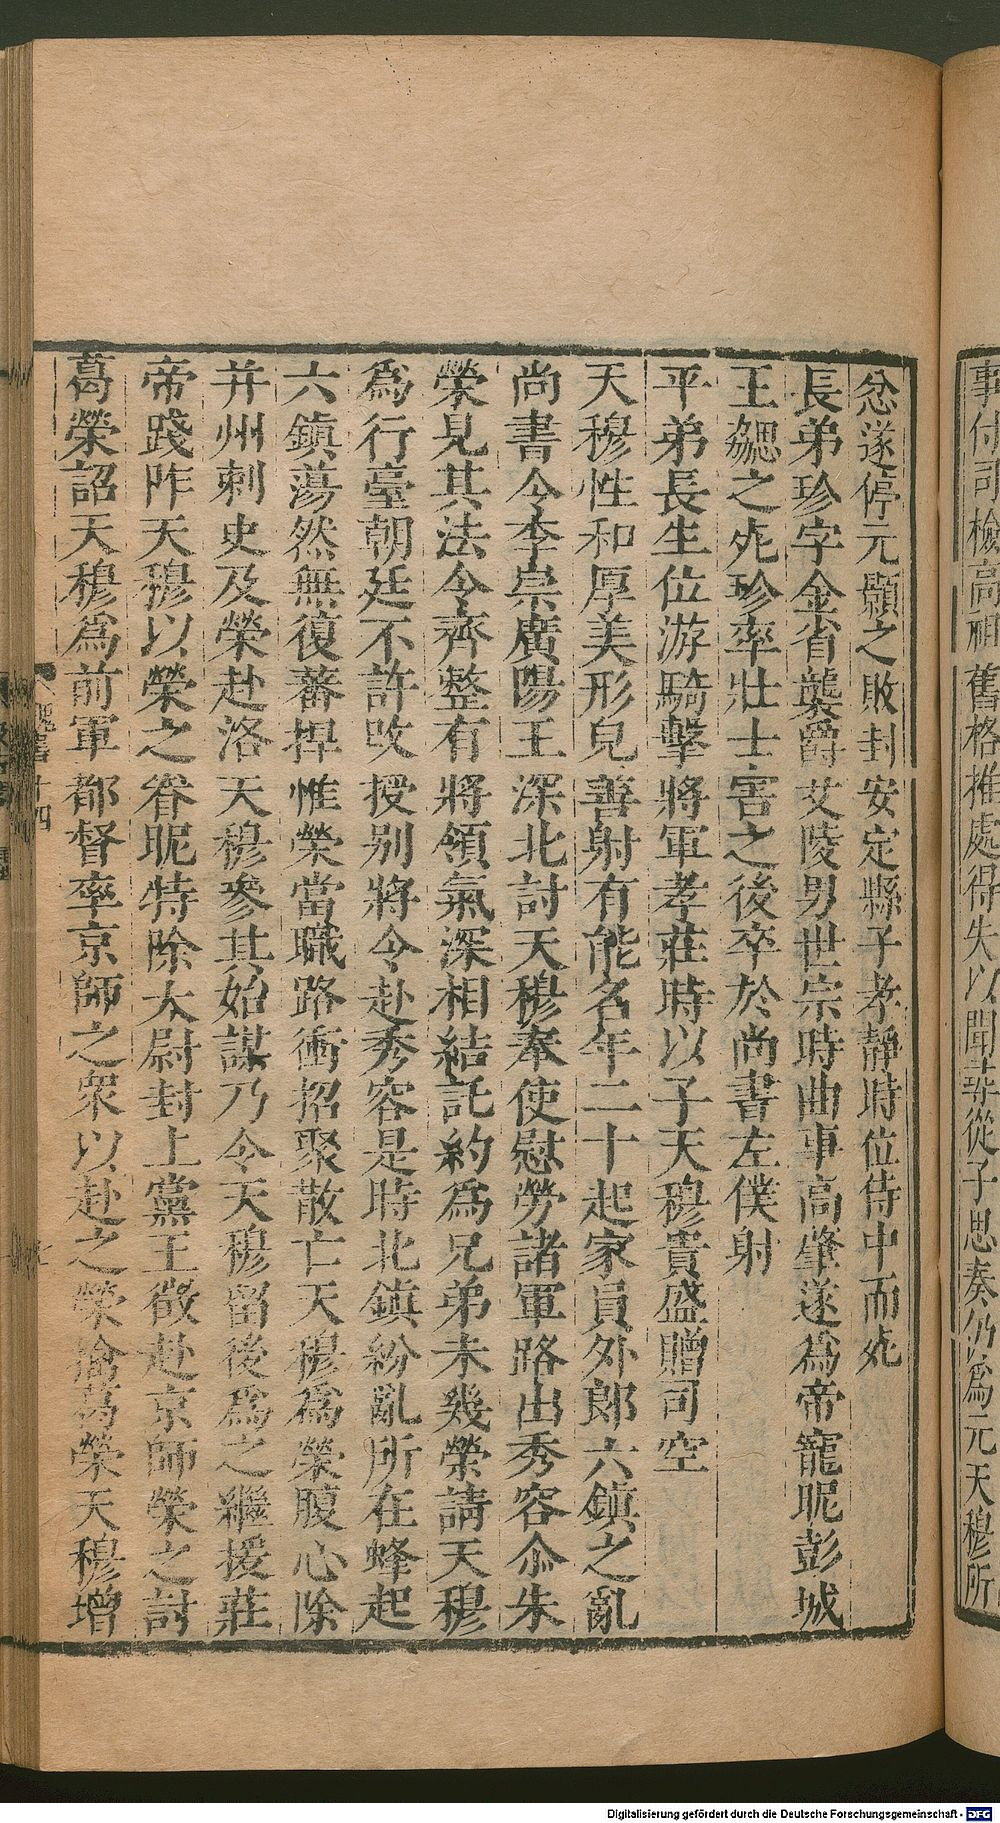 事付司檢高祖舊格推處得失以聞尋從子思奏仍爲元天穆所
忿遂停元顥之敗封安定縣子孝靜時位侍中而死
長弟珍字金省襲爵艾陵男世宗時曲事高肇遂爲帝寵昵彭城
王勰之死珍率壯士害之後卒於尚書左僕射
平弟長生位游騎擊將軍孝莊時以子天穆貴盛贈司空
天穆性和厚美形皃善射有能名年二十起家員外郎六鎮之亂
尚書令李崇廣陽王深北討天穆奉使慰勞諸軍路出秀容尒朱
榮見其法令齊整有將領氣深相結託約爲兄弟未幾榮請天穆
爲行臺朝廷不許改授別將令赴秀容是時北鎮紛亂所在蜂起
六鎮蕩然無復蕃捍惟榮當職路衝招聚散亡天穆爲榮腹心除
并州刺史及榮赴洛天穆參其始謀乃令天穆留後爲之繼援莊
帝踐阼天穆以榮之眷昵特除太尉封上黨王徵赴京師榮之討
葛榮詔天穆爲前軍都督率京師之眾以赴之榮擒葛榮天穆增
魏書十四
Digitalisierung gefördert durch die Deutsche Forschungsgemeinschaft - DFG